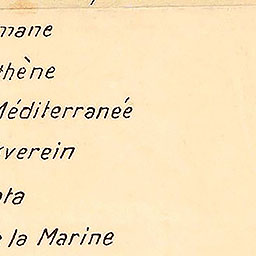 mane
thène
Méditerraneé
verein
ta
la Marine